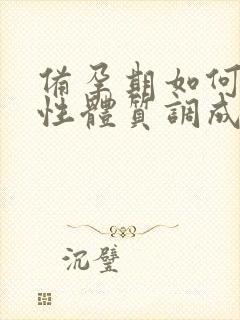 備孕期如何
性體質調成
沉璧